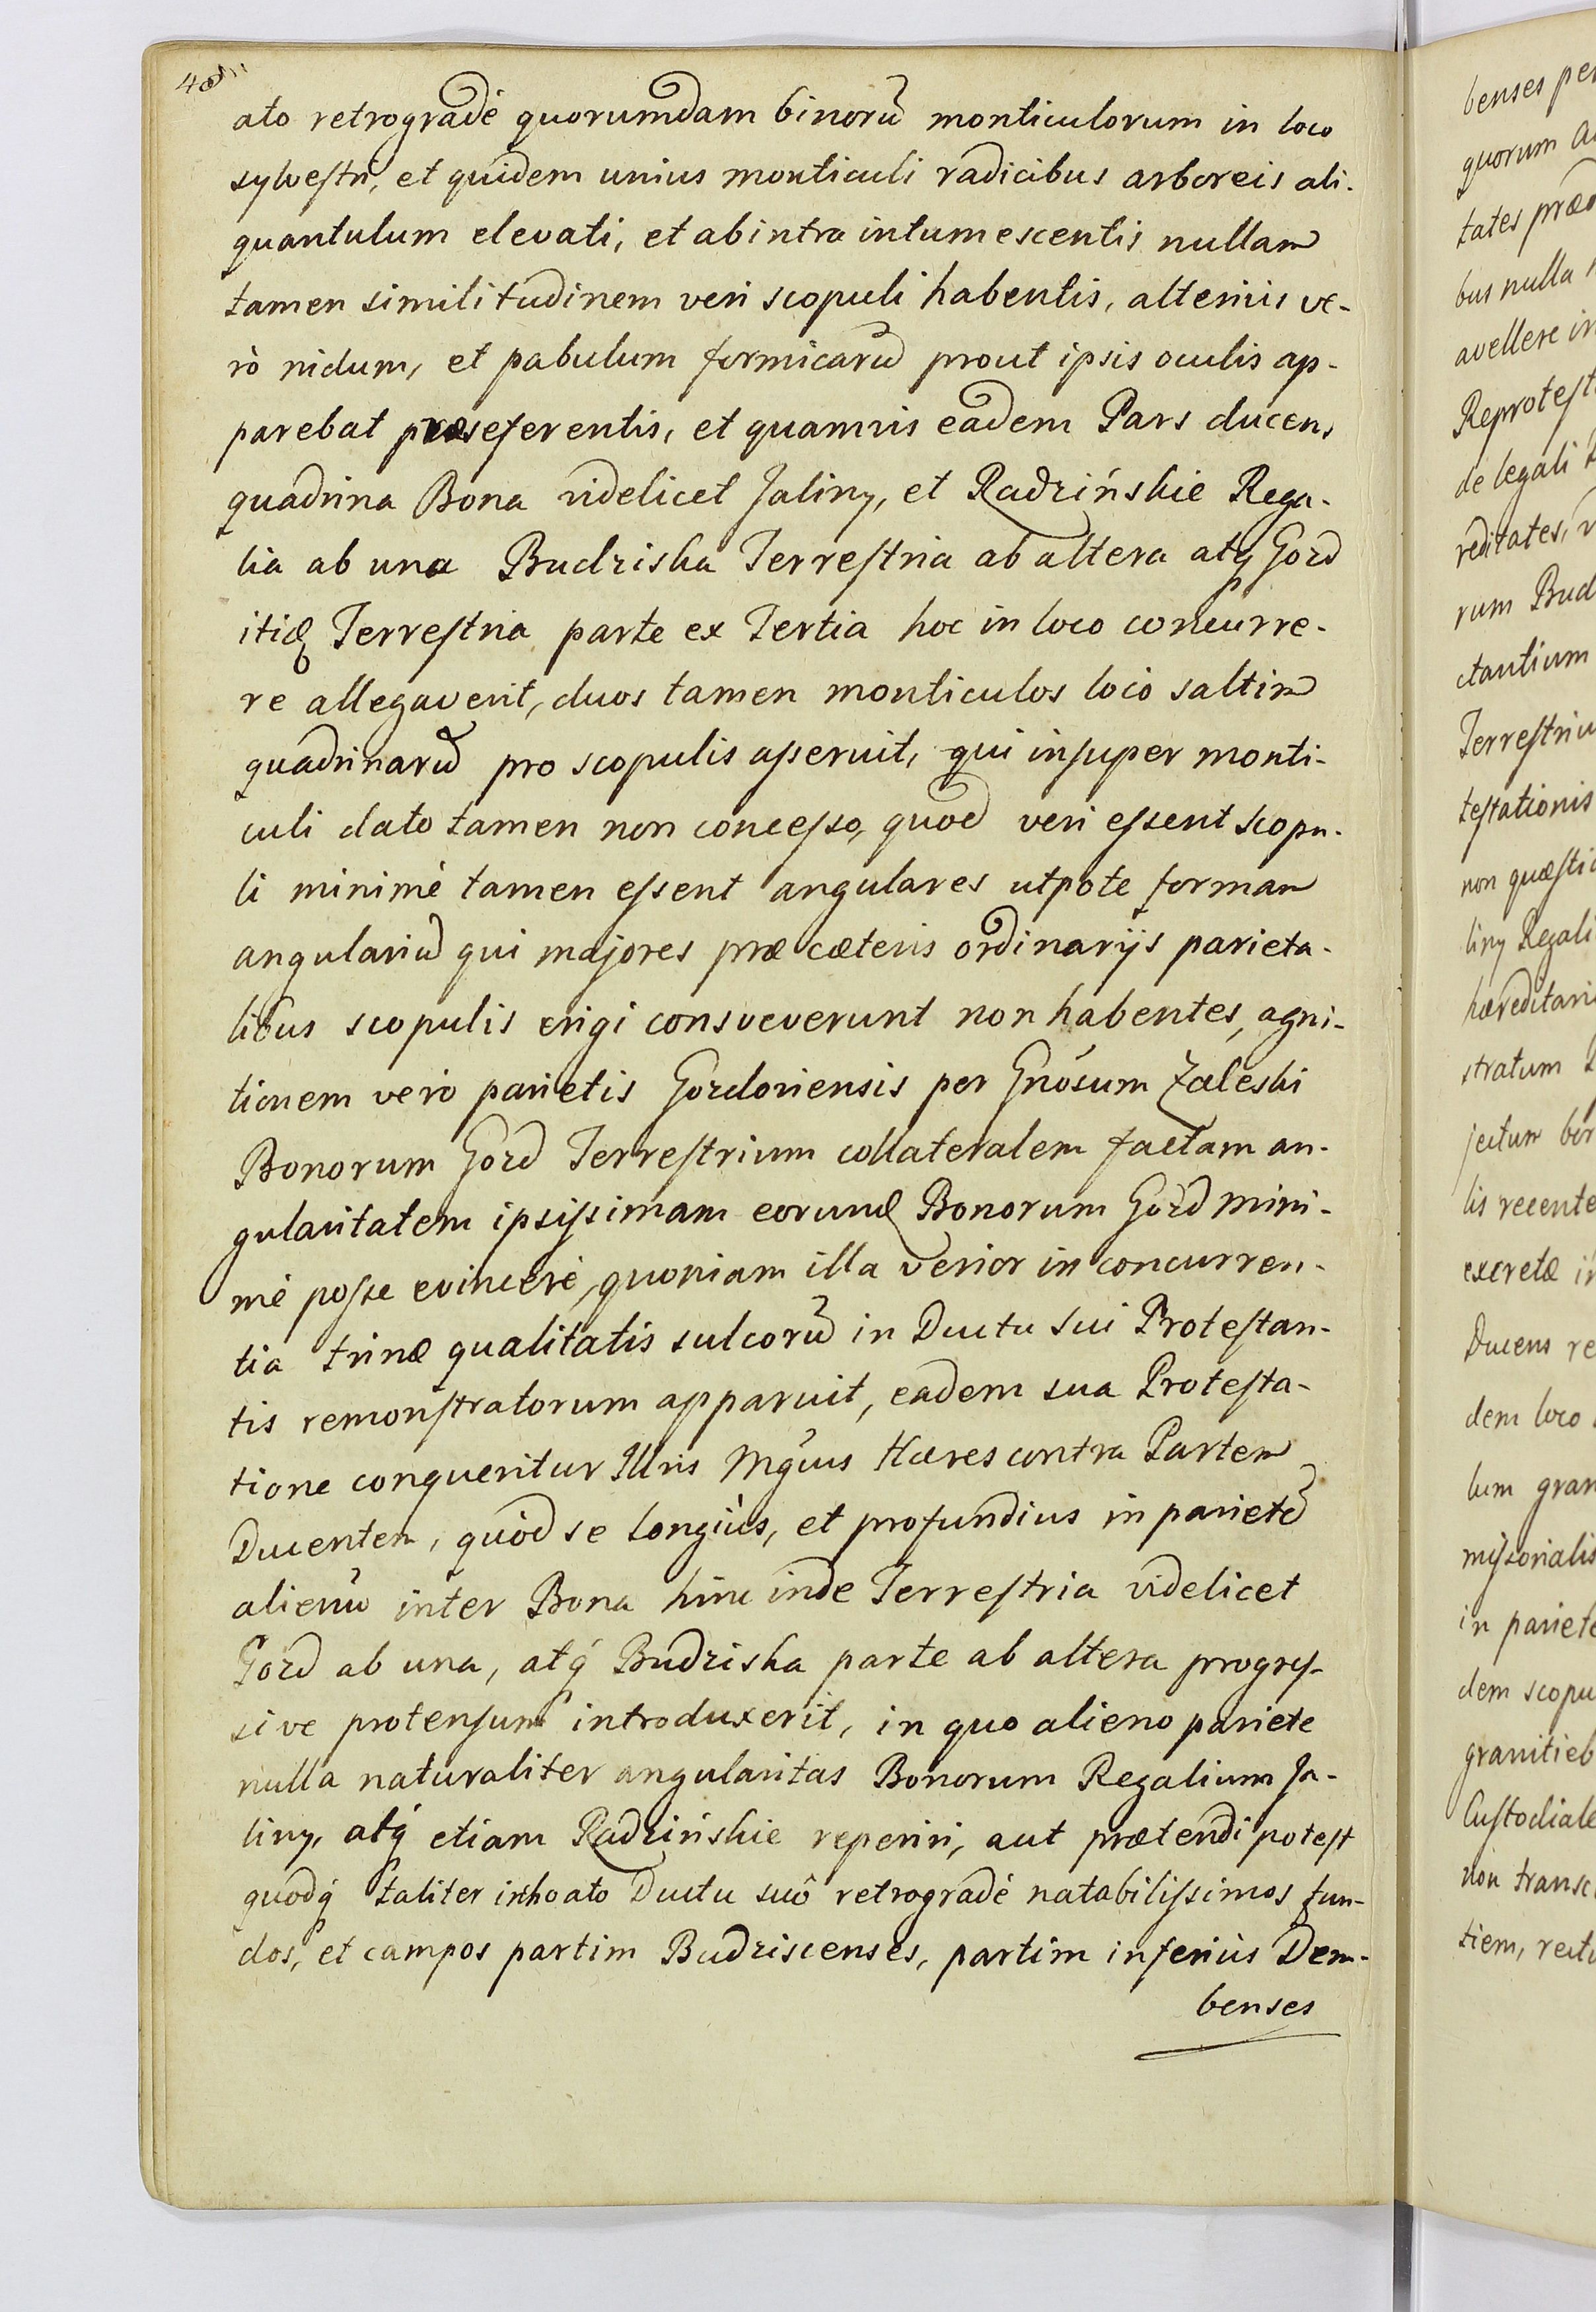 ato retrogradè quorumdam binorũ monticulorum in loco
sylvestri, et quidem unius monticuli radicibus arboreis ali-
quantulum elevati, et abintra intumescentis nullam
tamen similitudinem veri scopuli habentis, alterius ve-
rò nidum, et pabulum formicarũ prout ipsis oculis ap-
parebat præseferentis, et quamvis eadem Pars ducens
quadrina Bona videlicet Jaliny, et Radzińskie Rega-
lia ab una Budziska Terrestria ab altera atq Gozd
itidq Terrestria parte ex Tertia hoc in loco concurre-
re allegaverit, duos tamen monticulos loco saltim
quadrinarũ pro scopulis asseruit, qui insuper monti-
culi dato tamen non concesso, quod veri essent scopu-
li minimè tamen essent angulares utpote formam
angulariũ qui majores præ cæteris ordinarijs parieta-
libus scopulis erigi consveverunt non habentes, agni-
tionem verò parietis Gozdoviensis per Gnosum Zaleski
Bonorum Gozd Terrestrium collateralem factam an-
gularitatem ipsissimam eorundẽ Bonorum Gozd mini-
mè posse evincere, quoniam illa verior in concurren-
tia trinæ qualitatis sulcorũ in Ductu sui Protestan-
tis remonstratorum apparuit, eadem sua Protesta-
tione conqueritur Illris Mgcus Hæres contra Partem
Ducentem, quòd se longiùs, et profundius in parietẽ
alienũ inter Bona hinc inde Terrestria videlicet
Gozd ab una, atq́ Budziska parte ab altera progres-
sive protensum introduxerit, in quo alieno pariete
nulla naturaliter angularitas Bonorum Regalium Ja-
liny, atq́ etiam Radzińskie reperiri, aut prætendi potest
quodq́ taliter inchoato Ductu suô retrogradè natabilissimos fun-
dos, et campos partim Budziscenses, partim inferiùs Dem-
benses
benses per
quorum
tates præd
bus nulla
avellere in
Reprotest
de legali
reditates,
rum Bud
ctantium
Terrestriu
testationis
non quæstio
liny Regali
hæreditari
stratum
jectum
lis recente
excretæ in
Ducens re
dem loco
lum gran
missorialis
in pariete
dem scopu
granitieb
Custodiale
non transc
tiem, rectu